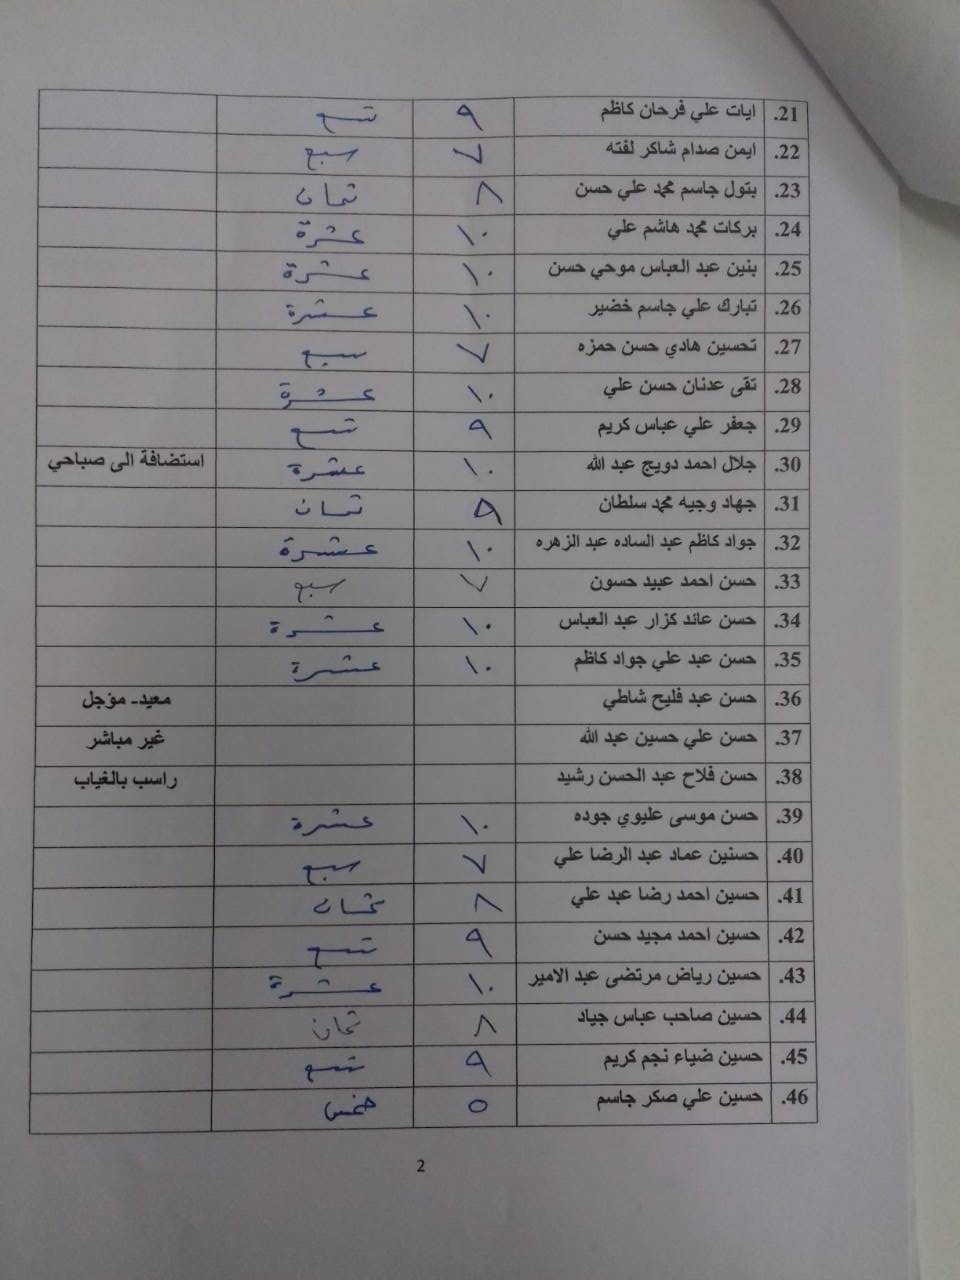 .21 ايات علي فرحان كاظم ٩ تسع
.22 ايمن صدام شاكر لفته ٧ سبع
.23 بتول جاسم محمد علي حسن ٨ ثمان
.24 بركات محمد هاشم علي ١٠ عشرة
.25 بنين عبد العباس موحي حسن ١٠ عشرة
.26 تبارك علي جاسم خضير ١٠ عشرة
.27 تحسين هادي حسن حمزه ٧ سبع
.28 تقى عدنان حسن علي ١٠ عشرة
.29 جعفر علي عباس كريم ٩ تسع
.30 جلال احمد دويج عبد الله ١٠ عشرة استضافة الى صباحي
.31 جهاد وجيه محمد سلطان ثمان
.32 جواد كاظم عبد الساده عبد الزهره ١٠ عشرة
.33 حسن احمد عبيد حسون ٧ سبع
.34 حسن عائد كزار عبد العباس ١٠ عشرة
.35 حسن عبد علي جواد كاظم ١٠ عشرة
.36 حسن عبد فليح شاطي معيد- مؤجل
.37 حسن علي حسين عبد الله غير مباشر
.38 حسن فلاح عبد الحسن رشيد راسب بالغياب
.39 حسن موسى عليوي جوده ١٠ عشرة
.40 حسنين عماد عبد الرضا علي ٧ سبع
.41 حسين احمد رضا عبد علي ٨ ثمان
.42 حسين احمد مجيد حسن ٩ تسع
.43 حسين رياض مرتضى عبد الامير ١٠ عشرة
.44 حسين صاحب عباس جياد ٨ ثمان
.45 حسين ضياء نجم كريم ٩ تسع
.46 حسين علي صكر جاسم ٥ خمس
2